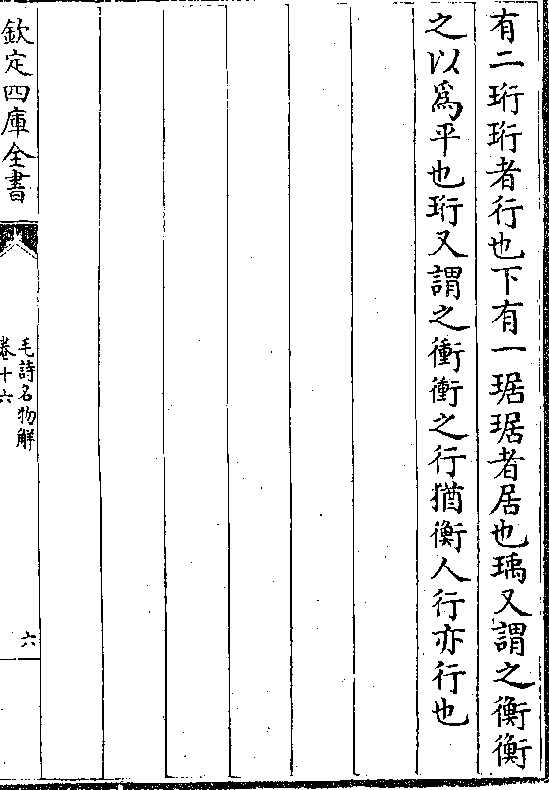 有二珩珩者行也下有一琚琚者居也瑀又謂之衡衡
之以為平也珩又謂之衝衝之行猶衡人行亦行也
欽定四庫全書
毛詩名物解
卷十六
六